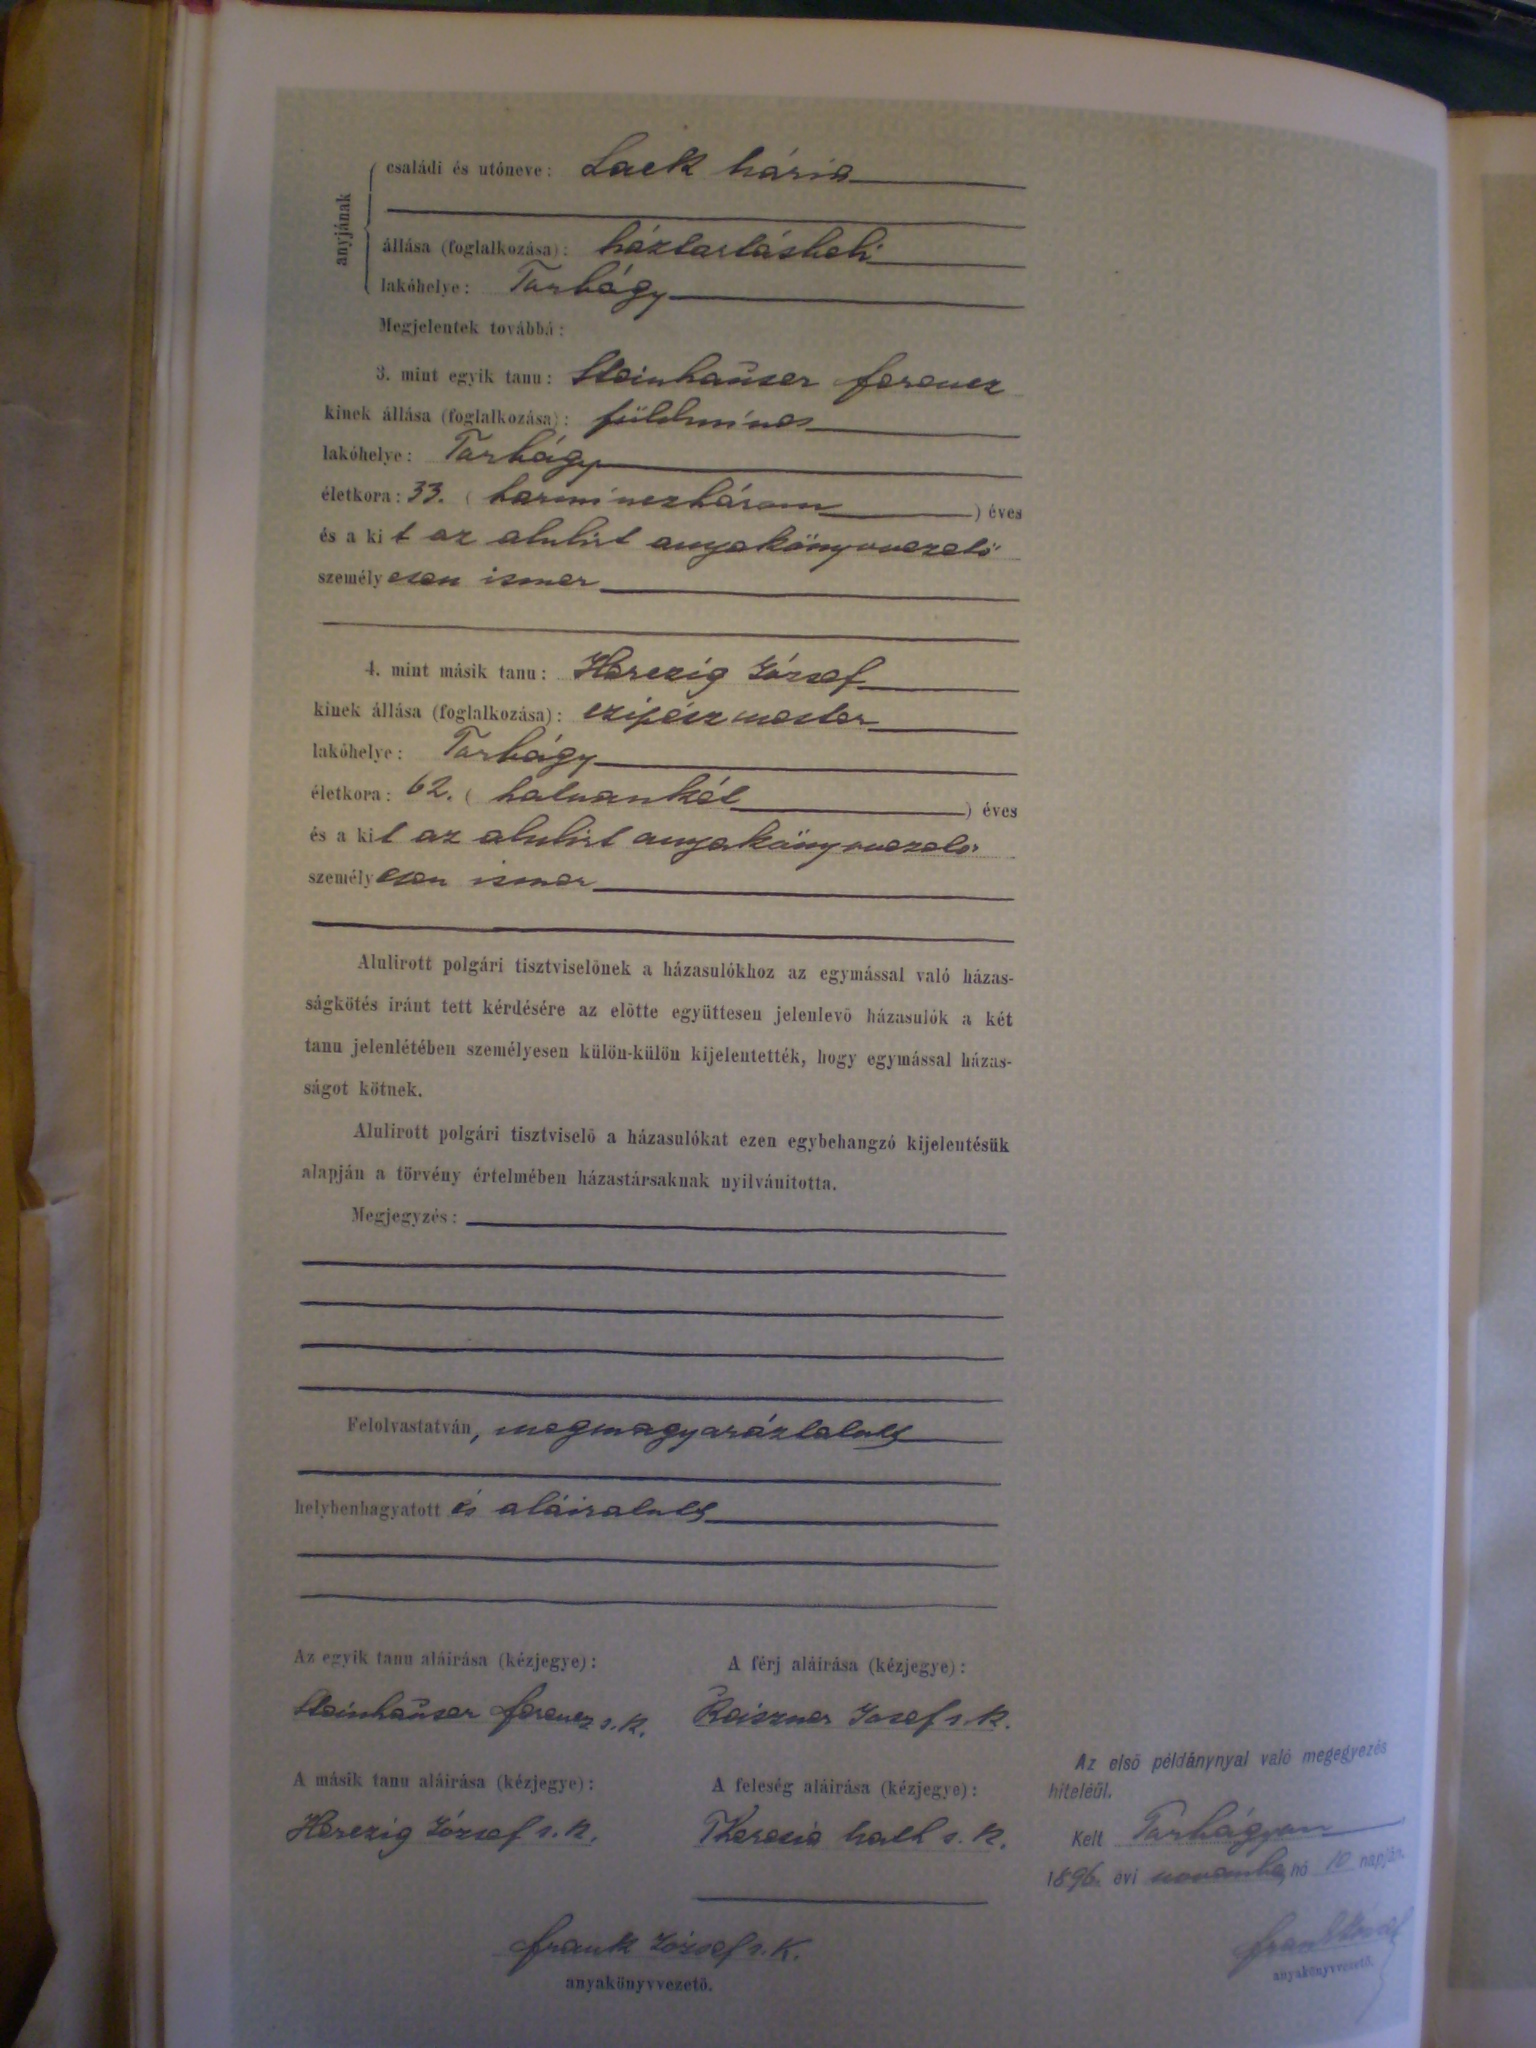 anyjának
családi és utóneve: Lack Mária
állása (foglalkozása): háztartásbeli
lakóhelye: Torbágy
Megjelentek továbbá:
3. mint egyik tanu: Steinhauser Ferencz
kinek állása (foglalkozása): földmíves
lakóhelye: Torbágy
életkora: 33. (harminczhárom) éves
és a kit az alulírt anyakönyvvezető
személyesen ismer
4. mint másik tanu: Herczig József
kinek állása (foglalkozása): czipészmester
lakóhelye: Torbágy
életkora: 62. (hatvankét) éves
és a kit az alulírt anyakönyvvezető
személyesen ismer
Alulirott polgári tisztviselőnek a házasulókhoz az egymással való házas-
ságkötés iránt tett kérdésére az előtte együttesen jelenlevő házasulók a két
tanu jelenlétében személyesen külön-külön kijelentették, hogy egymással házas-
ságot kötnek.
Alulirott polgári tisztviselő a házasulókat ezen egybehangzó kijelentésük
alapján a törvény értelmében házastársaknak nyilvánitotta.
Megjegyzés:
Felolvastatván, megmagyaráztatott
helybenhagyatott és aláiratott
Az egyik tanu aláírása (kézjegye):
Steinhauser Ferencz s. k.
A férj aláírása (kézjegye):
Reiszner Josef s. k.
A másik tanu aláírása (kézjegye):
Herczig József s. k.
A feleség aláírása (kézjegye):
Theresia s. k.
Frank József s. k.
anyakönyvvezető.
Az első példánynyal való megegyezés
hiteléül.
Kelt Torbágyon
1896. évi november hó 10 napján.
Frank József
anyakönyvvezető.